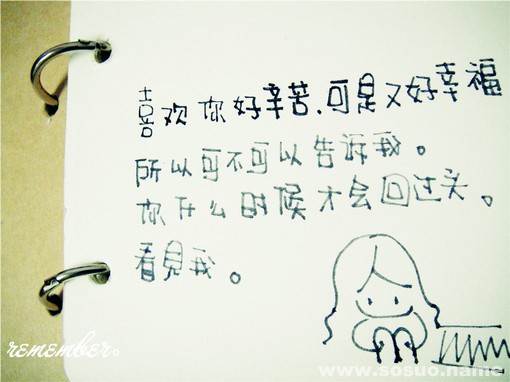 喜欢你好辛苦、可是又好幸福
所以可不可以告诉我。
你什么时候才会回过头。
看見我。
remember。
www.sosuo.name